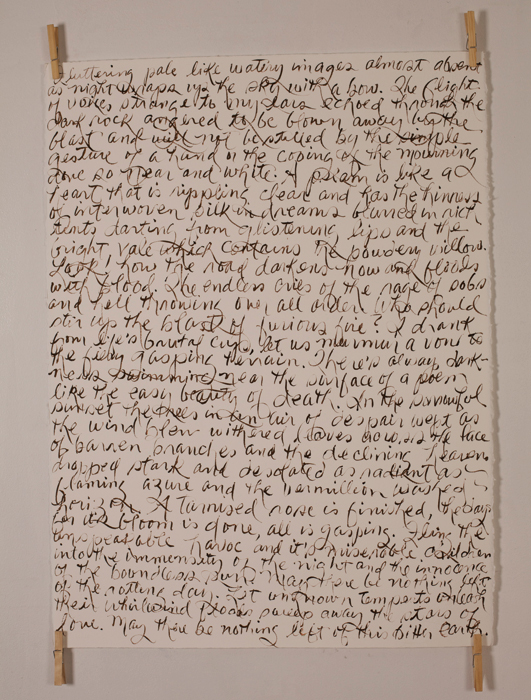 fluttering pale like watery images almost absent
as night wraps up the sky with a bow. The flight
of voices strange to my ears echoed through the
dark rock angered to be blown away by the
blast and will not be stilled by the simple
gesture of a hand or the coping of the mourning
dove so near and white. A psalm is like a
feast that is rippling clear and has the thinness
of interwoven silk in dreams blurred in rich
tents darting from glistening lips and the
bright vale which contains the powdery willows.
Look, how the road darkens now and floods
with blood. The endless cries of the rage of sobs
and hell throwing over all order. Who should
stir up the blast of furious fire? I drank
from life's brutal cup, let us murmur a vow to
the fiery gasping terrain. There's always dark-
ness swimming near the surface of a poem
like the easy beauty of death. In the sorrowful
sunset the trees in the air of despair wept as
the wind blew withered leaves across the face
of barren branches and the declining heavens
dropped stark and desolated as radiant as
flaming azure and the vermillion washed
horizon. A tarnished rose is finished, the day
for its bloom is done, all is gasping. Fling the
unspeakable havoc and it's miserable children
into the immensity of the night and the innocence
of the boundless. May there be nothing left
of the rotting day. Let unknown tempests unleash
their whirlwind floods sweep away the stars of
love. May there be nothing left of this bitter earth.